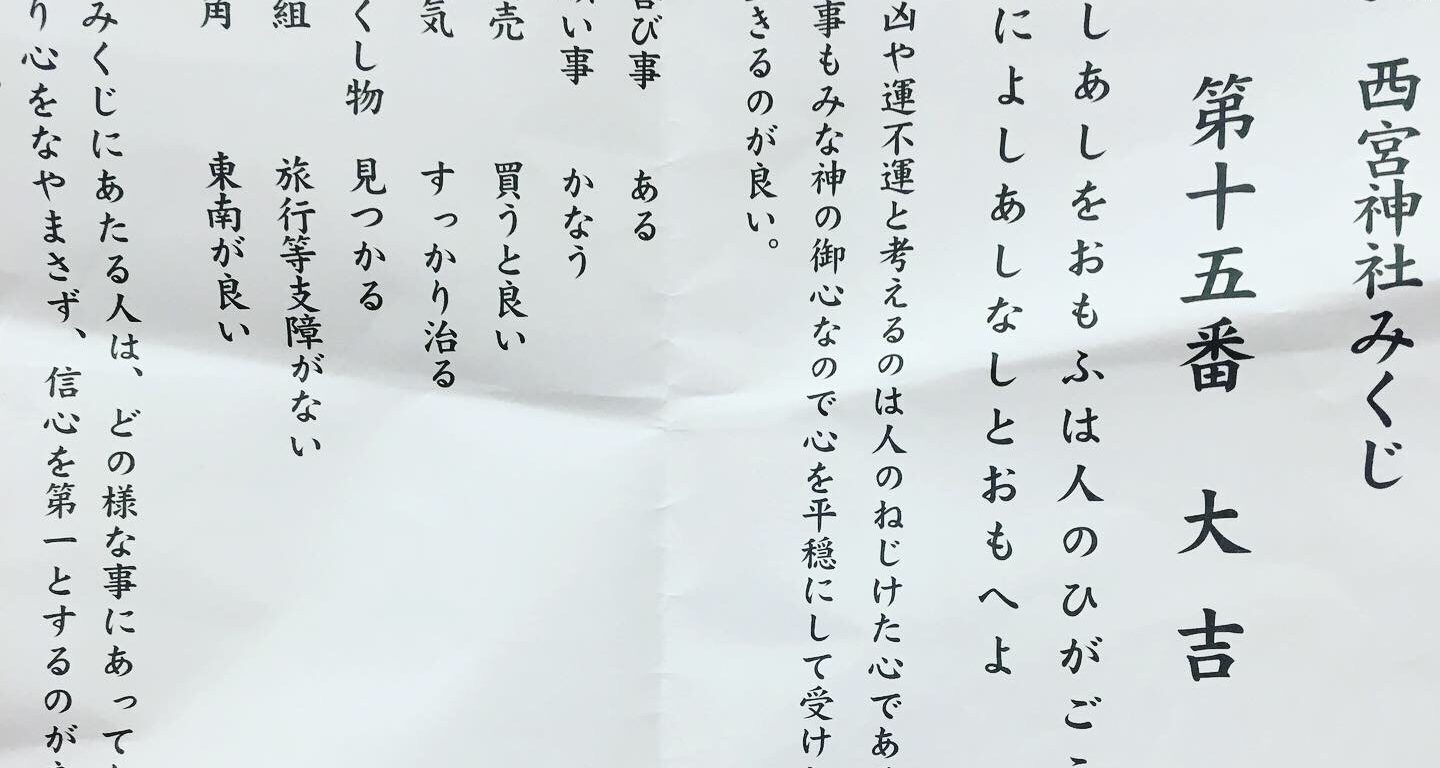 西宮神社みくじ
第十五番 大吉
しあしをおもふは人のひがごこ
によしあしなしとおもへよ
凶や運不運と考えるのは人のねじけた心であ
事もみな神の御心なので心を平穏にして受け
きるのが良い。
び事 ある
い事 かなう
売 買うと良い
気 すっかり治る
くし物 見つかる
組 旅行等支障がない
角 東南が良い
みくじにあたる人は、どの様な事にあって
り心をなやまさず、信心を第一とするのが